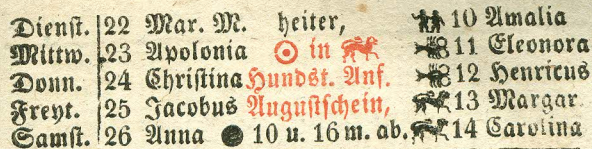 Dienst. 22 Mar. M. heiter, 10 Amalia
Mittw. 23 Apolonia ☉ in ♌ 11 Eleonora
Donn. 24 Christina Hundst. Anf. 12 Henricus
Freyt. 25 Jacobus Augustschein, 13 Margar.
Samst. 26 Anna ● 10 u. 16 m. ab. 14 Carolina